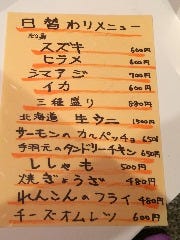 日替わりメニュー
スズキ 600円
ヒラメ 600円
シマアジ 700円
イカ 600円
三種盛り 880円
北海道 生ウニ 1500円
サーモンのカルパッチョ 650円
手羽元のタンドリーチキン 650円
ししゃも 500円
焼ぎょうざ 480円
れんこんのフライ 480円
チーズオムレツ 600円